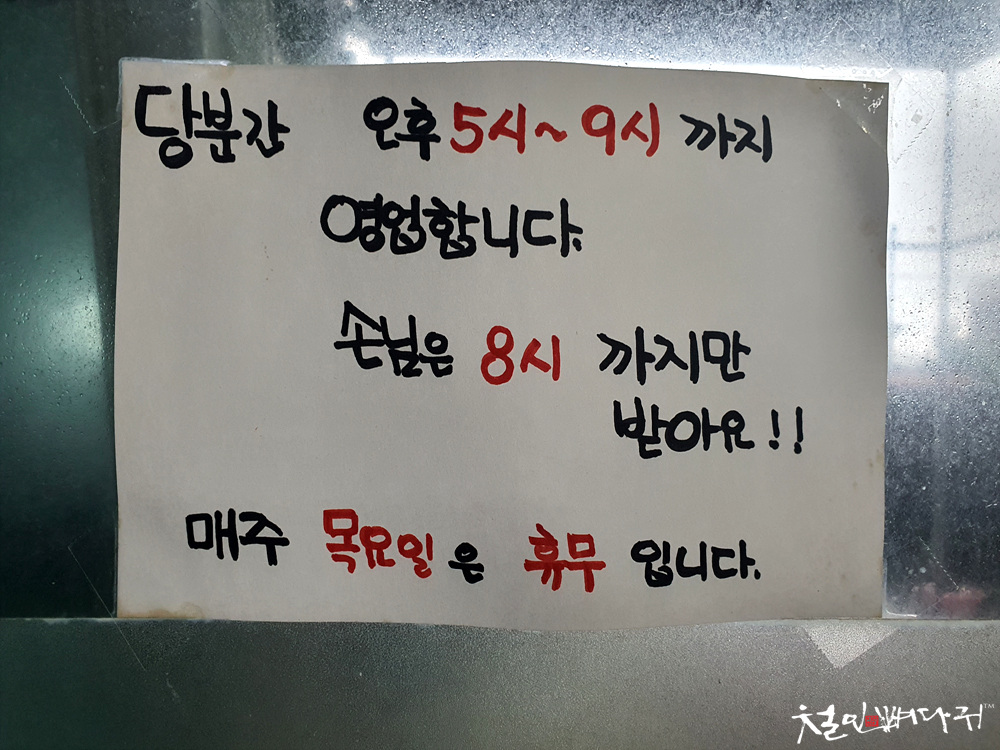 당분간 오후 5시~9시 까지
영업합니다.
손님은 8시 까지만
받아요!!
매주 목요일은 휴무 입니다.